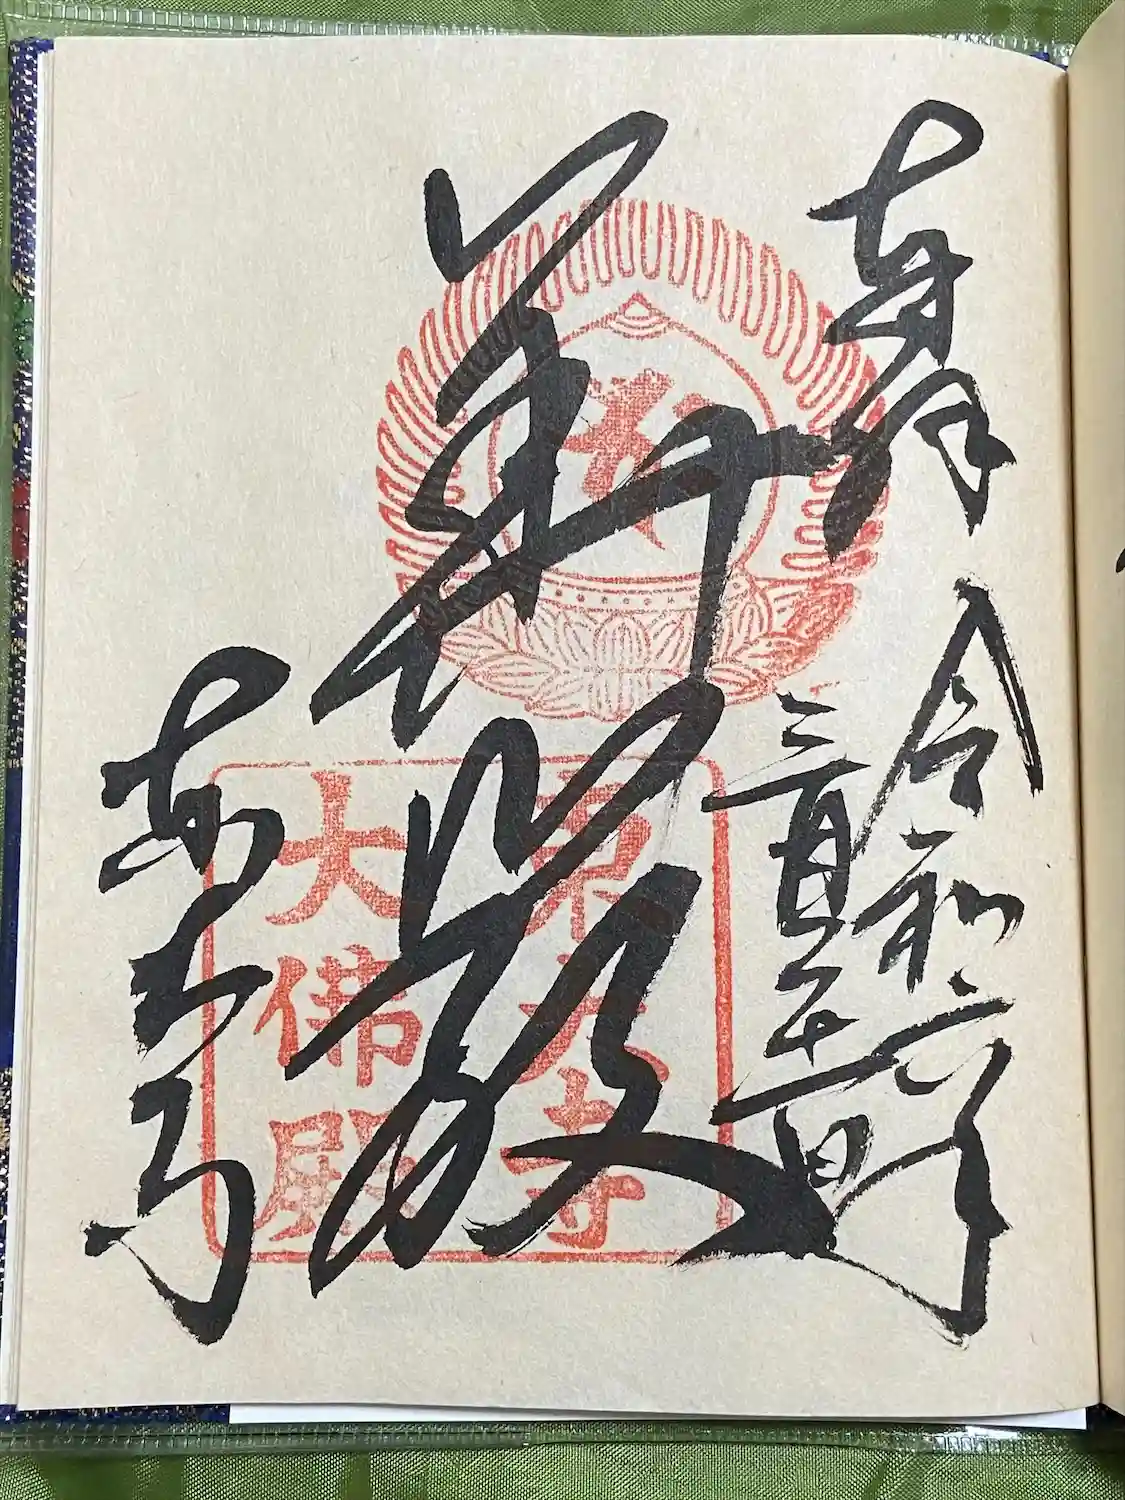 奉拝
令和六年
三月
華厳
東大寺
東大寺
大佛殿